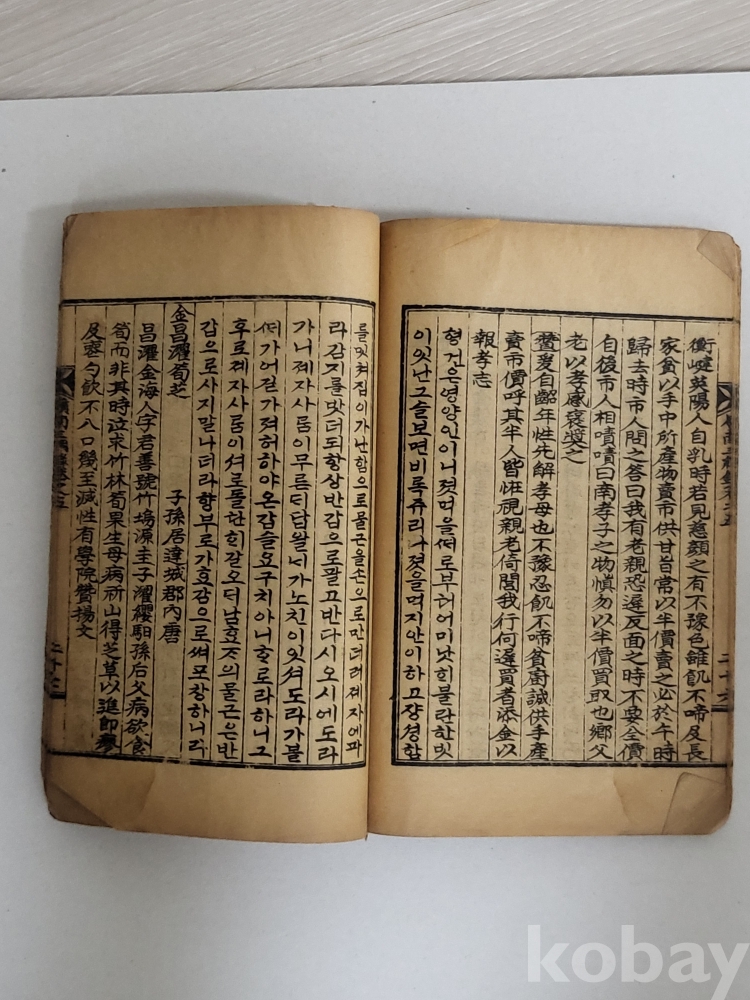 衡健英陽人自乳時若見慈顔之有不豫色雖飢不啼及長
家貧以手中所產物賣市供甘旨常以半價賣之必於午時
歸去時市人問之答曰我有老親恐遲反面之時不要全價
自後市人相嘖嘖曰南孝子之物愼勿以半價買取也鄉父
老以孝感褒奬之
自齠年性先解孝母也不豫忍飢不啼貧廚誠供手產
賣市價呼其半人皆恠視親老倚閭我行何遲買者添金以
報孝志
형건은영양인이니졋먹을ᄯᅢ로부터어미낫희불란한빗
이잇난그슬보면비록쥬리나졋을먹지안이하고쟝셩함
를밋쳐집이가난함으로물근을손으로만더러졔자에파
라감지를밧더되항상반갑으로팔고반다시오시에도라
가니졔자사ᄅᆞᆷ이무른ᄃᆡ답왈ᄂᆡ가노친이잇셔도라가볼
ᄯᅢ가어길가져허하야온갑슬요구치아니호로라하니그
후로졔자사ᄅᆞᆷ이셔로돌탄히갈오더남효ᄌᆞ의물근은반
갑으로사지말나더라향부로가효감으로써포창하니라
金昌濯筍芝 子孫居達城郡內唐
昌濯金海人字君善號竹塢源圭子濯纓馹孫后父病欲食
筍而非其時泣求竹林筍果生母病祈山得芝草以進卽
及喪勺飮不入口幾至滅性有專院贊揚文
二十七
kobay